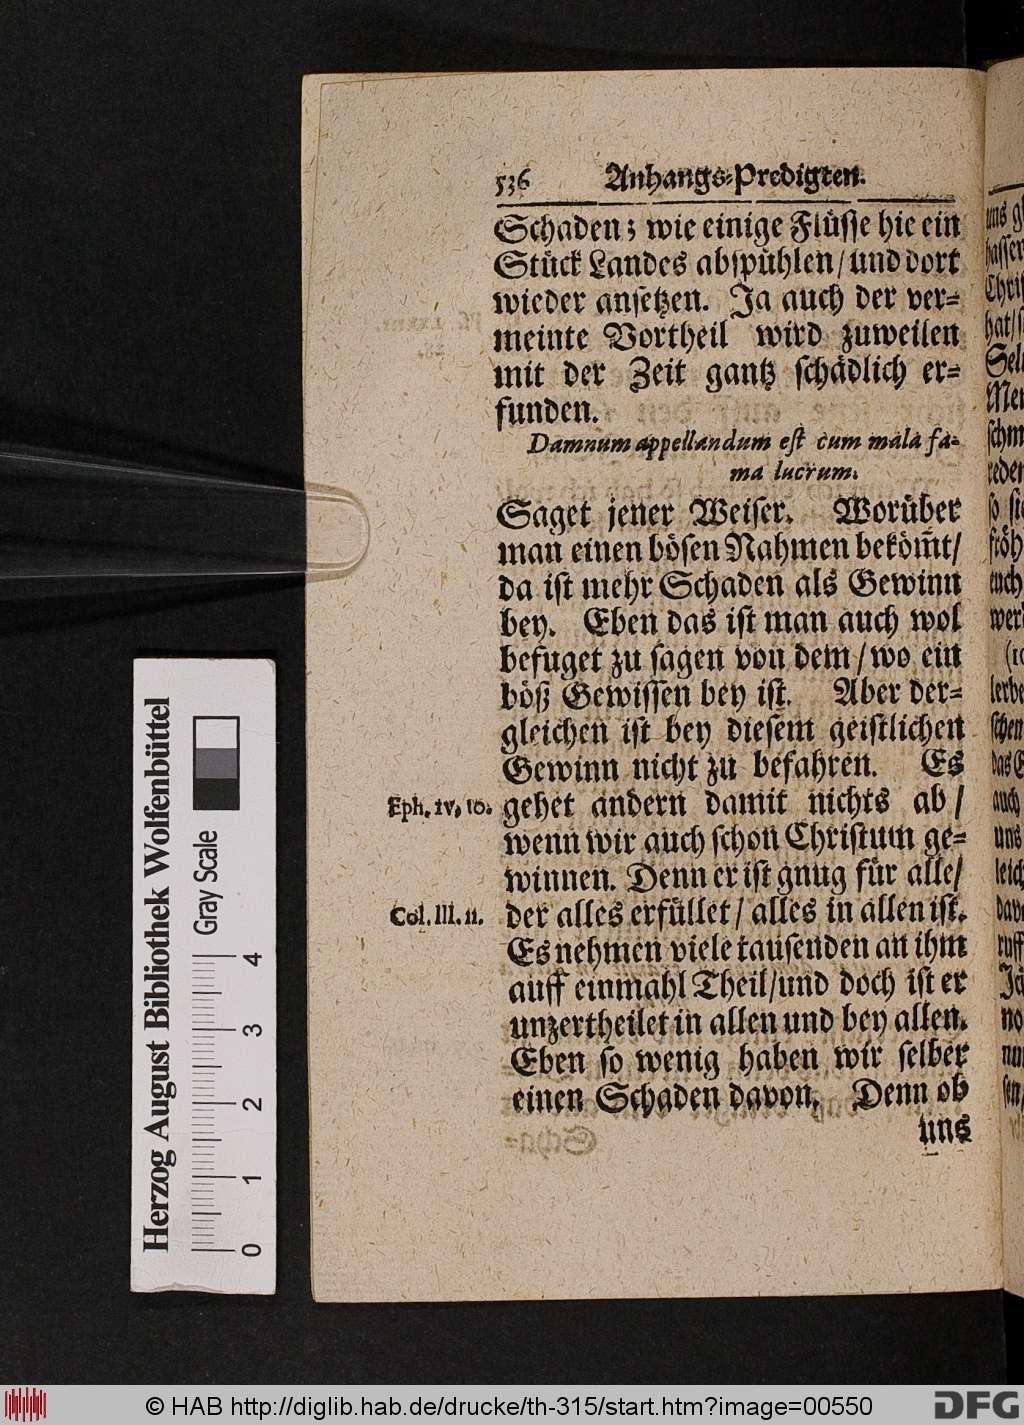 536 Anhangs-Predigten.
Schaden; wie einige Flüsse hie ein
Stück Landes abspühlen/ und dort
wieder ansetzen. Ja auch der ver-
meinte Vortheil wird zuweilen
mit der Zeit gantz schädlich er-
funden.
Damnum appellandum est cum mala fa-
ma lucrum.
Saget jener Weiser. Worüber
man einen bösen Nahmen beköm̃t/
da ist mehr Schaden als Gewinn
bey. Eben das ist man auch wol
befuget zu sagen von dem/ wo ein
böß Gewissen bey ist. Aber der-
gleichen ist bey diesem geistlichen
Gewinn nicht zu befahren. Es
Eph. IV, 10. gehet andern damit nichts ab/
wenn wir auch schon Christum ge-
winnen. Denn er ist gnug für alle/
Col. III. 11. der alles erfüllet/ alles in allen ist.
Es nehmen viele tausenden an ihm
auff einmahl Theil/ und doch ist er
unzertheilet in allen und bey allen.
Eben so wenig haben wir selber
einen Schaden davon. Denn ob
uns
Herzog August Bibliothek Wolfenbüttel
Gray Scale
0 1 2 3 4
© HAB http://diglib.hab.de/drucke/th-315/start.htm?image=00550
DFG